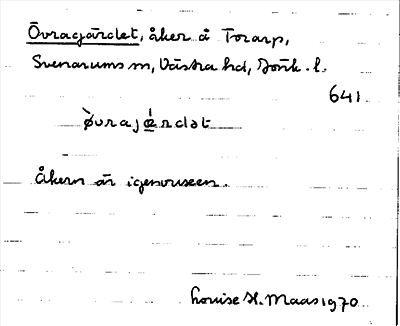 Övragärdet, åker å Torarp,
Svenarums sn, Västra hd, Jönk. l.
641
øvrajæ̲rdət
Åkern är igenvuxen.
Louise H. Maas 1970